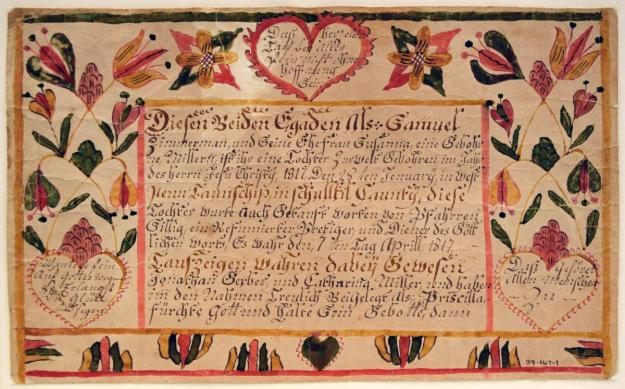 Das
Diesen Beiden Egaden Als: Samuel
Zimmerman, und Seine Ehefrau Susanna eine Gebohr
ne Millerin, ist ihr eine Tochter Zur Welt Gebohren im Jahr
des herrn Jesu Christy, 1817 Den 28 ten January, in West
Penn Taunschip in schulkil Caunty, diese
Tochter wurte Auch Getauft worten von Pfahrren
Zillig, ein Refurmierter Pretiger und Diener des Gött
lichen worts, Es wahr den, 7 ten Tag Aprill 1817
Taufzeigen wahren dabey Gewesen
Jonathan Gerber, und Catharina Miller, und haben
in den Nahmen Treulich Beigelegt Als; Priscilla
fürchte Gott und Halte Sein Gebotte, dann
und segen
Daß gehöret
Allen Menschen
Zu
39-167-1